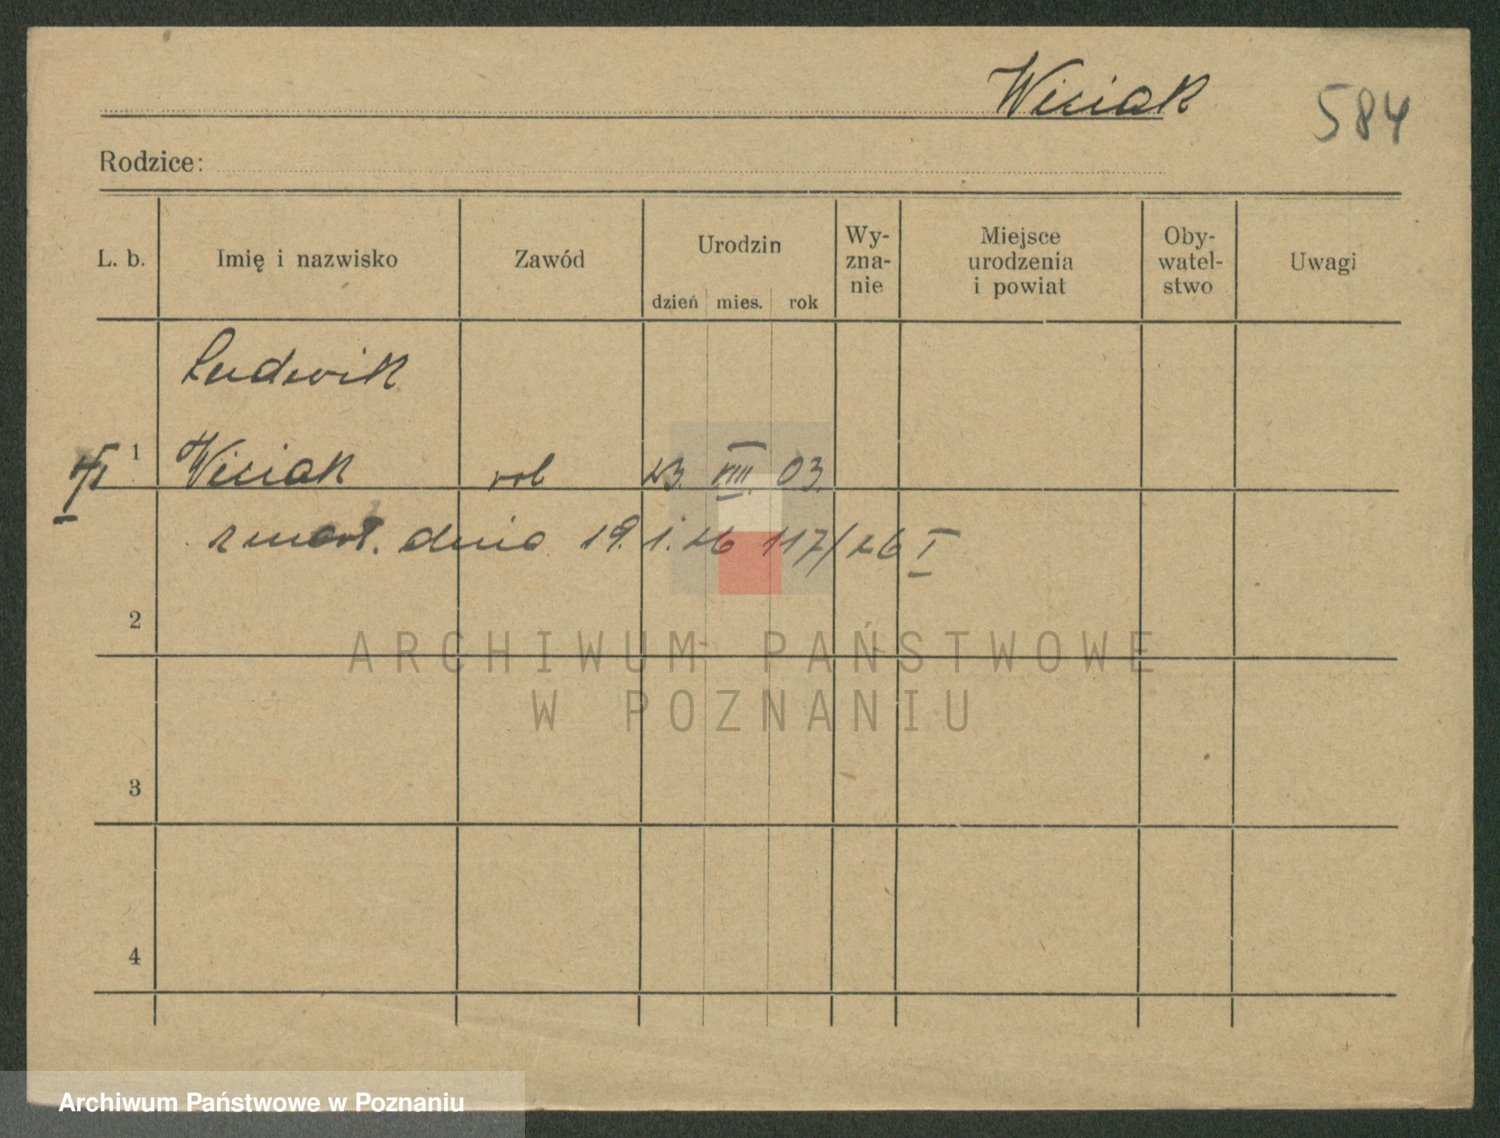 Wiciak
584
Rodzice:
L. b.
Imię i nazwisko
Zawód
Urodzin
dzień mies. rok
Wy-
zna-
nie
Miejsce
urodzenia
i powiat
Oby-
watel-
stwo
Uwagi
Ludwik
1 Wiciak rob 23. VIII. 03.
zmarł. dnia 19. 1. 26 117/26 I
2
3
4
ARCHIWUM PAŃSTWOWE
W POZNANIU
Archiwum Państwowe w Poznaniu